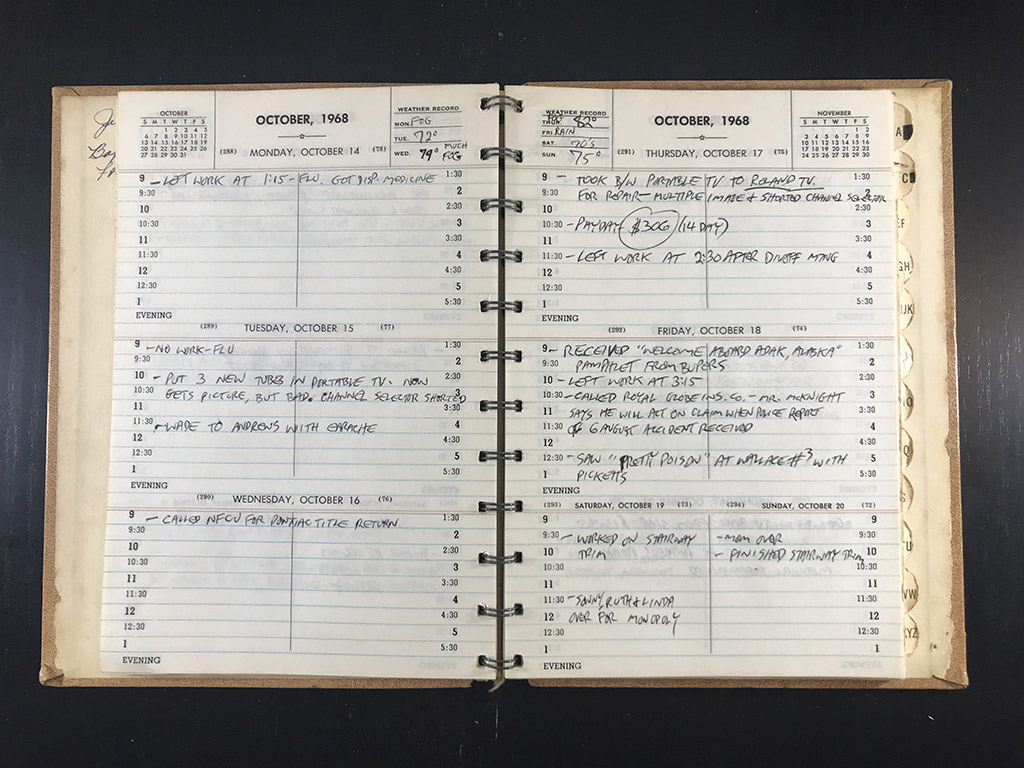 OCTOBER
S M T W T F S
1 2 3 4 5
6 7 8 9 10 11 12
13 14 15 16 17 18 19
20 21 22 23 24 25 26
27 28 29 30 31
OCTOBER, 1968
WEATHER RECORD
MON. FOG
TUE. 72°
WED. 79° MUCH FOG
(288) MONDAY, OCTOBER 14 (78)
9 - LEFT WORK AT 1:15 - FLU. GOT DISP. MEDICINE 1:30
9:30 2
10 2:30
10:30 3
11 3:30
11:30 4
12 4:30
12:30 5
1 5:30
EVENING
(289) TUESDAY, OCTOBER 15 (77)
9 - NO WORK - FLU 1:30
9:30 2
10 - PUT 3 NEW TUBES IN PORTABLE TV. NOW 2:30
10:30 GETS PICTURE, BUT BAD. CHANNEL SELECTOR SHORTED 3
11 3:30
11:30 - WADE TO ANDREWS WITH EARACHE 4
12 4:30
12:30 5
1 5:30
EVENING
(290) WEDNESDAY, OCTOBER 16 (76)
9 - CALLED NFCU FOR PONTIAC TITLE RETURN 1:30
9:30 2
10 2:30
10:30 3
11 3:30
11:30 4
12 4:30
12:30 5
1 5:30
EVENING
WEATHER RECORD
THUR. 82°
FRI. RAIN
SAT. 70'S
SUN. 75°
OCTOBER, 1968
NOVEMBER
S M T W T F S
1 2
3 4 5 6 7 8 9
10 11 12 13 14 15 16
17 18 19 20 21 22 23
24 25 26 27 28 29 30
(291) THURSDAY, OCTOBER 17 (75)
9 - TOOK B/W PORTABLE TV TO ROLAND TV. 1:30
9:30 FOR REPAIR - MULTIPLE IMAGE & SHORTED CHANNEL SELECTOR 2
10 2:30
10:30 - PAYDAY $306 (14 DAY) 3
11 3:30
11:30 - LEFT WORK AT 2:30 AFTER DIVOFF MTNG 4
12 4:30
12:30 5
1 5:30
EVENING
(292) FRIDAY, OCTOBER 18 (74)
9 - RECEIVED "WELCOME ABOARD ADAK, ALASKA" 1:30
9:30 PAMPHLET FROM BUPERS 2
10 - LEFT WORK AT 3:15 2:30
10:30 - CALLED ROYAL GLOBE INS. CO. - MR. MCKNIGHT 3
11 SAYS HE WILL ACT ON CLAIM WHEN POLICE REPORT 3:30
11:30 OF 6 AUGUST ACCIDENT RECEIVED 4
12 4:30
12:30 - SAW "PRETTY POISON" AT WALLACE #3 WITH 5
1 PICKETTS 5:30
EVENING
(293) SATURDAY, OCTOBER 19 (73)
9
9:30 - WORKED ON STAIRWAY
10 TRIM
10:30
11
11:30 - SONNY, RUTH & LINDA
12 OVER FOR MONOPOLY
12:30
1
EVENING
(294) SUNDAY, OCTOBER 20 (72)
9
- MOM OVER 9:30
- FINISHED STAIRWAY TRIM 10
10:30
11
11:30
12
12:30
1
A
C
EF
GH
IJK
Q
S
TU
VW
XYZ